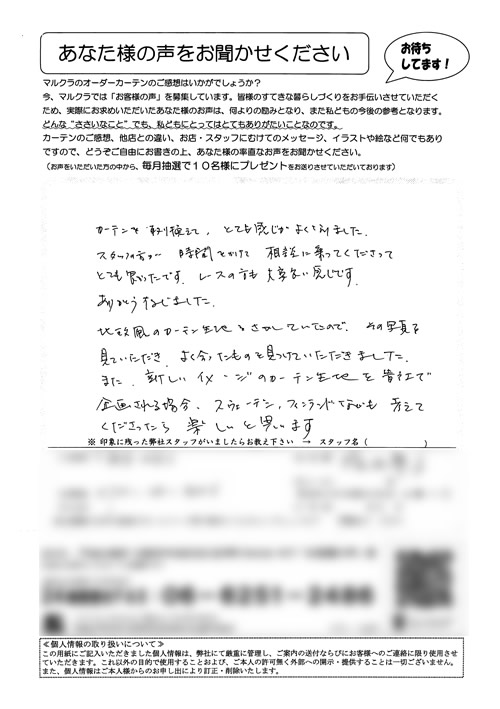 あなた様の声をお聞かせください
お待ち
してます！
マルクラのオーダーカーテンのご感想はいかがでしょうか？
今、マルクラでは「お客様の声」を募集しています。皆様のすてきな暮らしづくりをお手伝いさせていただく
ため、実際にお求めいただいたあなた様のお声は、何よりの励みとなり、また私どもの今後の参考となります。
どんな“ささいなこと”でも、私どもにとってはとてもありがたいことなのです。
カーテンのご感想、他店との違い、お店・スタッフにむけてのメッセージ、イラストや絵など何でもあり
ですので、どうぞご自由にお書きの上、あなた様の率直なお声をお聞かせください。
（お声をいただいた方の中から、毎月抽選で１０名様にプレゼントをお送りさせていただいております）
カーテンを取り換えて、とても感じがよくなりました。
スタッフの方が 時間をかけて 相談に乗ってくださって
とても良かったです。レースの方も 大変良い感じです。
ありがとうございました。
北欧風のカーテン生地をさがしていたので、その写真を
見ていただき、よく合ったものを見つけていただきました。
また、新しいイメージのカーテン生地を貴社で
企画される場合、スウェーデン、フィンランドなども 考えて
くださったら 楽しいと思います
※ 印象に残った弊社スタッフがいましたらお教え下さい → スタッフ名（ ）
06-6251-2486
≪個人情報の取り扱いについて≫
この用紙にご記入いただきました個人情報は、弊社にて厳重に管理し、ご案内の送付ならびにお客様へのご連絡に限り使用させ
ていただきます。これ以外の目的で使用することおよび、ご本人の許可無く外部への開示・提供することは一切ございません。
また、個人情報はご本人様からのお申し出により訂正・削除いたします。